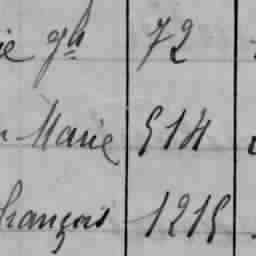 ie 72
Marie 514
François 1215